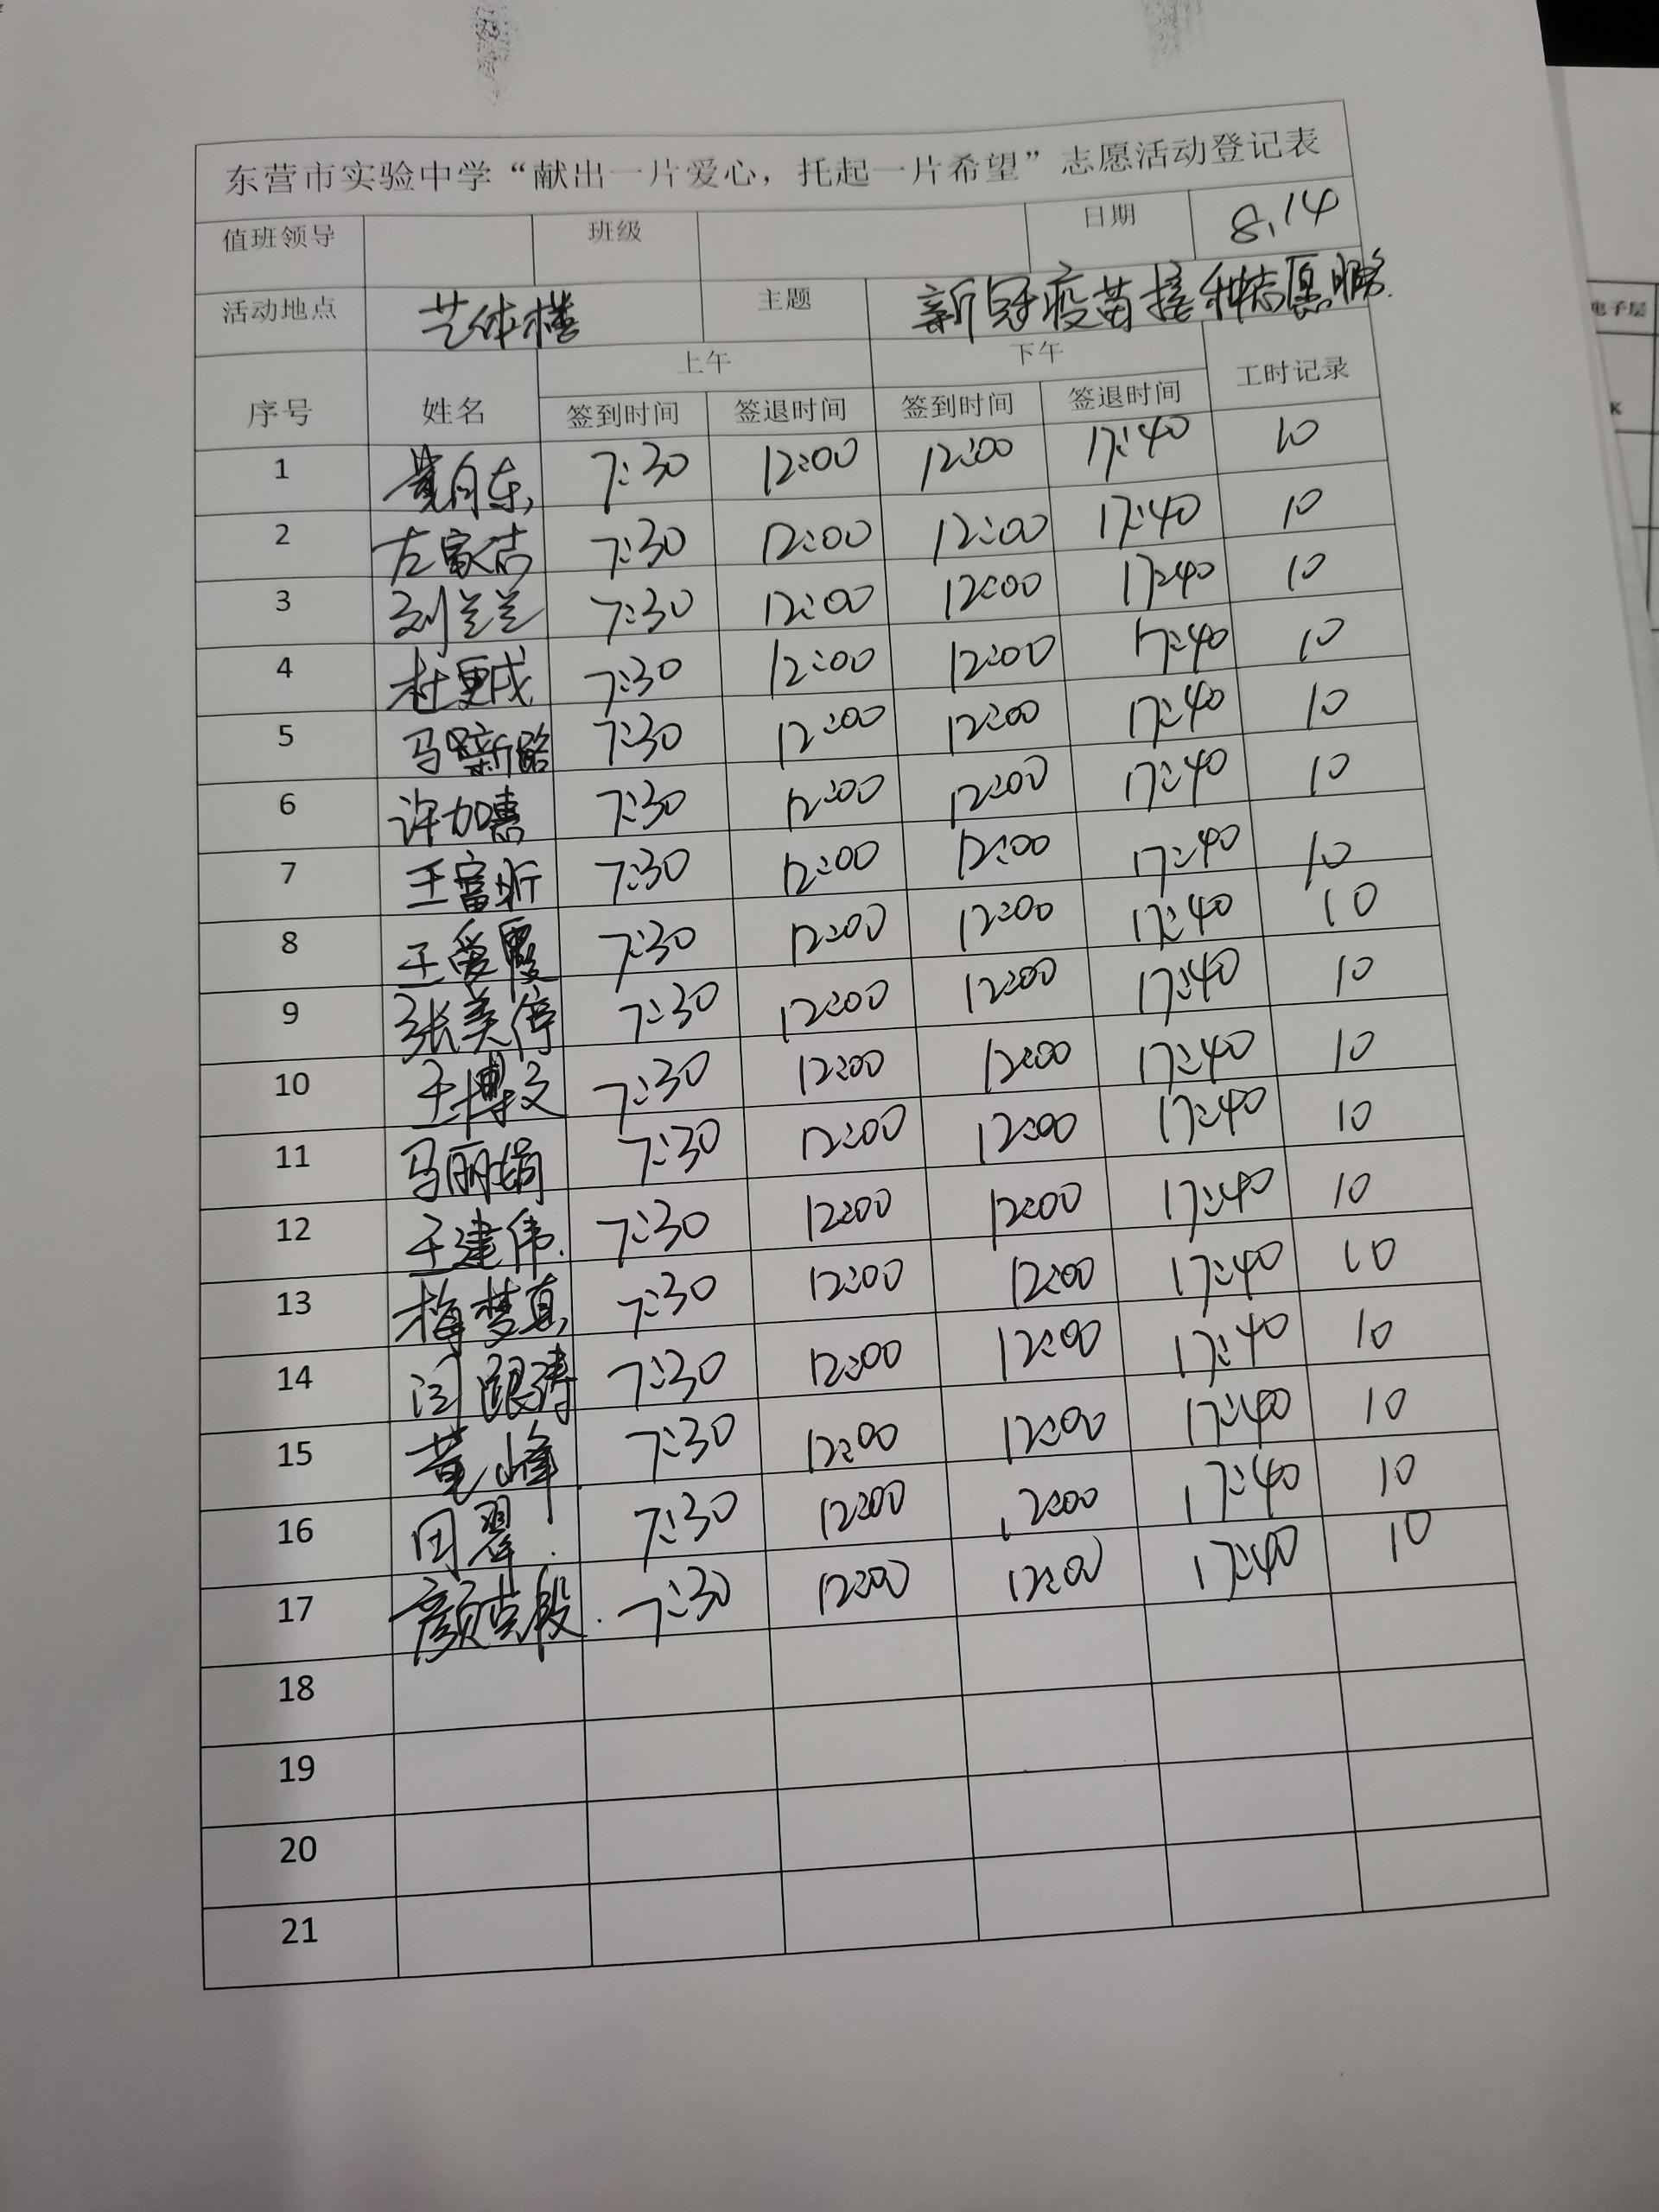 东营市实验中学“献出一片爱心，托起一片希望”志愿活动登记表
值班领导 班级 日期 8.14
活动地点 艺体楼 主题 新冠疫苗接种志愿服务
上午 下午
序号 姓名 签到时间 签退时间 签到时间 签退时间 工时记录
1 7:30 12:00 12:00 17:40 10
2 左家吉 7:30 12:00 12:00 17:40 10
3 刘兰兰 7:30 12:00 12:00 17:40 10
4 杜更成 7:30 12:00 12:00 17:40 10
5 7:30 12:00 12:00 17:40 10
6 许加惠 7:30 12:00 12:00 17:40 10
7 王富昕 7:30 12:00 12:00 17:40 10
8 王爱霞 7:30 12:00 12:00 17:40 10
9 张美停 7:30 12:00 12:00 17:40 10
10 王博文 7:30 12:00 12:00 17:40 10
11 马丽娟 7:30 12:00 12:00 17:40 10
12 王建伟 7:30 12:00 12:00 17:40 10
13 梅梦真 7:30 12:00 12:00 17:40 10
14 7:30 12:00 12:00 17:40 10
15 黄峰 7:30 12:00 12:00 17:40 10
16 田翠 7:30 12:00 12:00 17:40 10
17 7:30 12:00 12:00 17:40 10
18
19
20
21
电子层
K